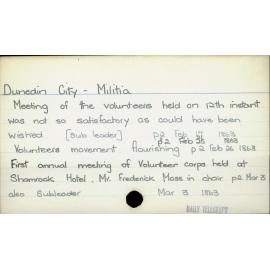 Dunedin City - Militia
Meeting of the volunteers held on 12th instant
was not so satisfactory as could have been
wished [sub leader] p2 Feb 17 1863
p2 Feb 25 1863
Volunteers movement flourishing p2 Feb 26 1863
First annual meeting of Volunteer corps held at
Shamrock Hotel, Mr. Frederick Moss in chair p2 Mar 3
also Subleader Mar 3 1863
DAILY TELEGRAPH